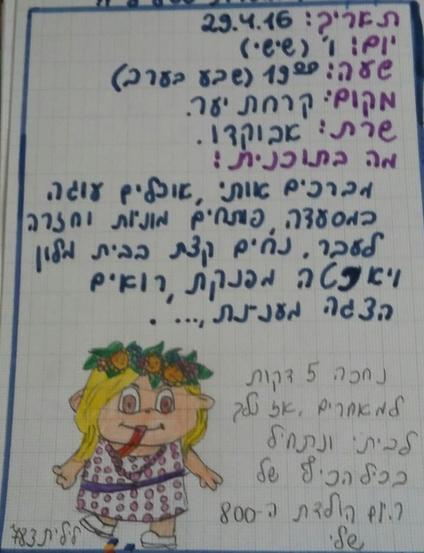 תאריך: 29.4.16
יום: ו' (שישי)
שעה: 19:00 (שבע בערב)
מקום: קרחת יער.
שרת: אבוקדו.
מה בתוכנית:
מברכים אותי, אוכלים עוגה
במסעדה, פותחים מוניות וחזרה
לעבר, נחים קצת בבית מלון
ויאכטה מפנקת, רואים
הצגה מעניינת, ... .
נחכה 5 דקות
למאחרים, אז נלך
לביתי ונתחיל
בכיל הכיף של
היום הולדת ה-800
שלי
לילית 783